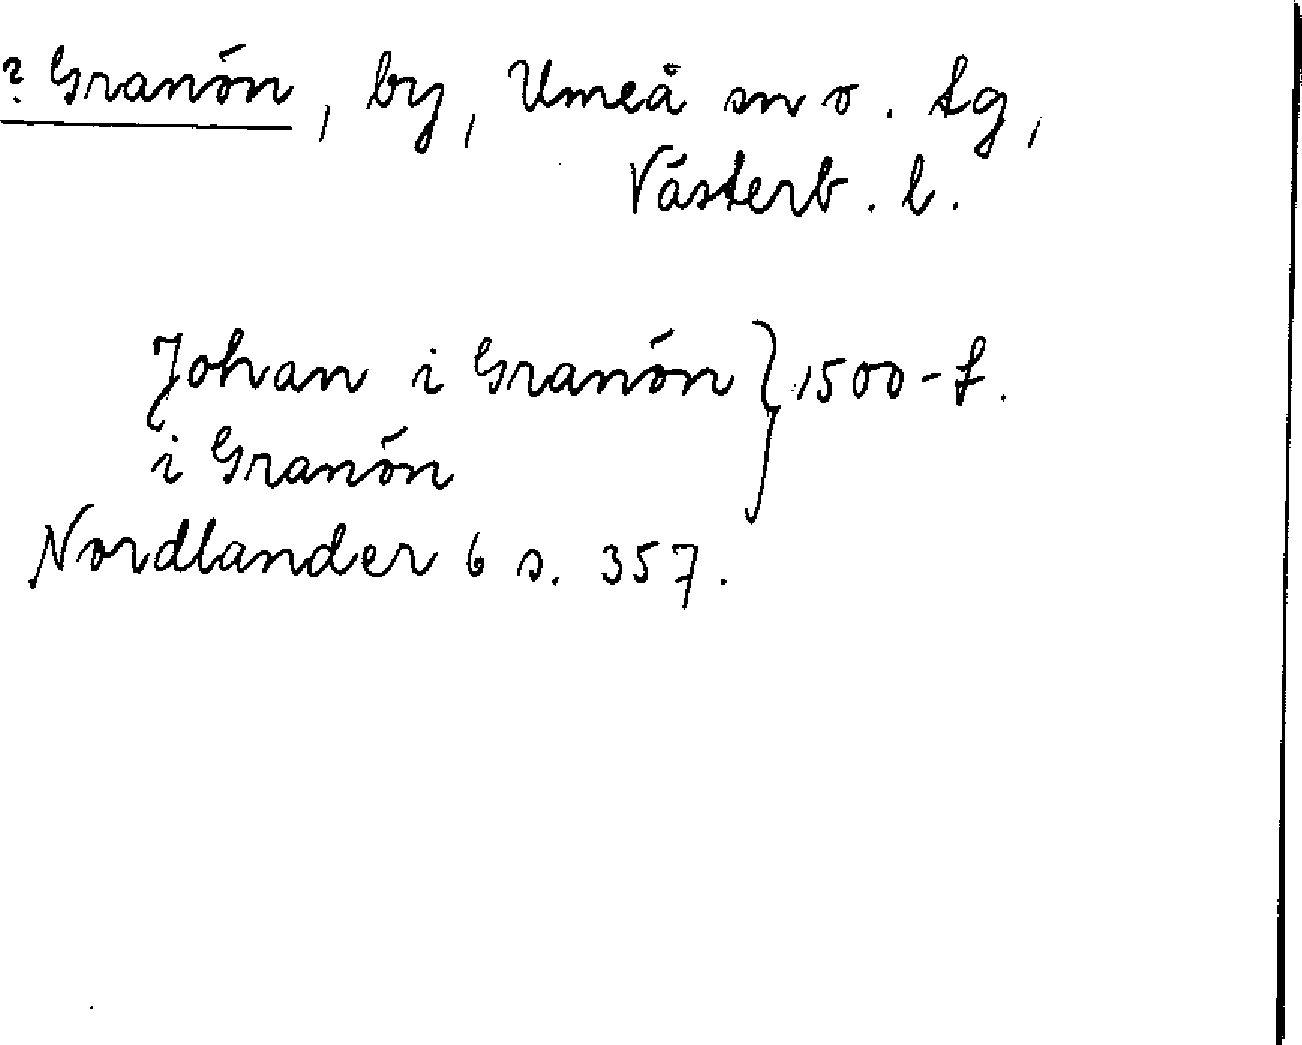 ? Granön, by, Umeå sn o. tg,
Västerb. l.
Johan i Granön } 1500-t.
i Granön
Nordlander 6 s. 357.